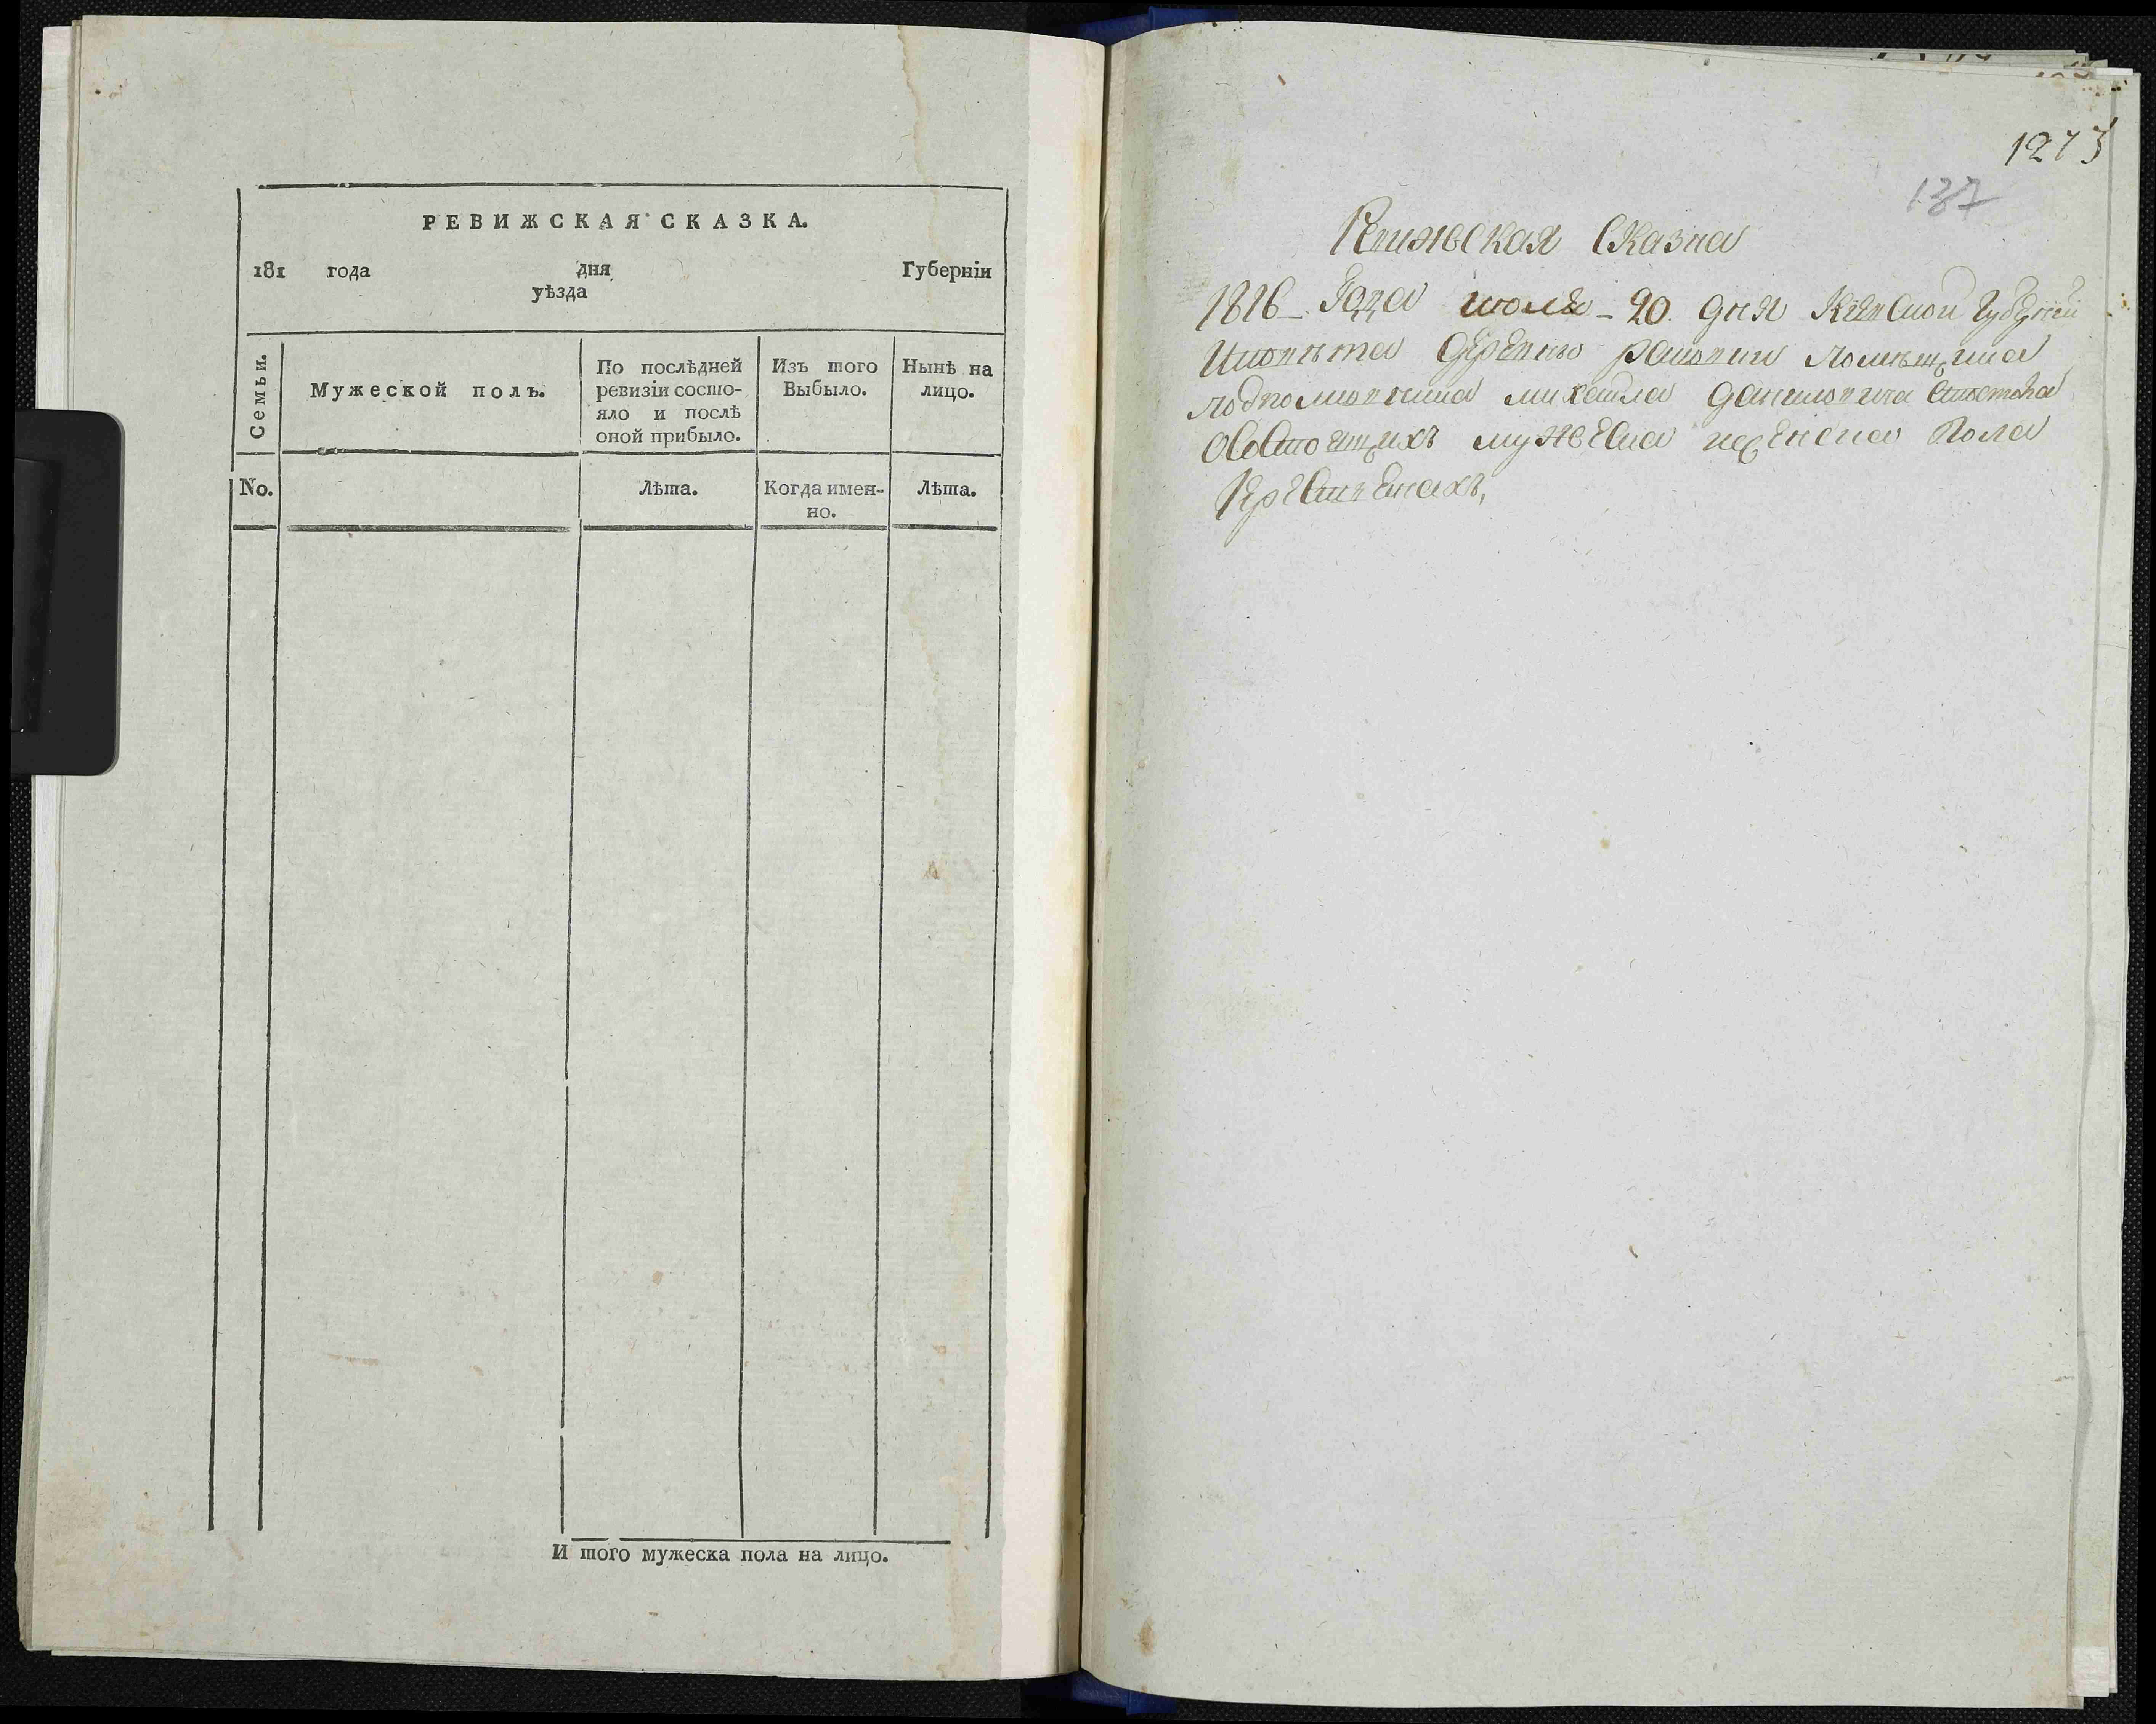 РЕВИЖСКАЯ СКАЗКА.
181 года дня Губерніи
уѣзда
Семьи.
Мужеской полъ.
По послѣдней
ревизіи состо-
яло и послѣ
оной прибыло.
Изъ того
Выбыло.
Нынѣ на
лицо.
No.
Лѣта.
Когда имен-
но.
Лѣта.
И того мужеска пола на лицо.
1273
137
Ревижская Сказка
1816 Года июля 20. дня Киевской Губернии
помещика
михаила даниловича
мужеска женска Пола